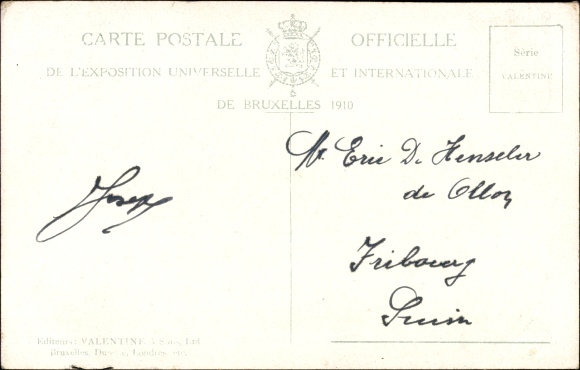 CARTE POSTALE OFFICIELLE
DE L'EXPOSITION UNIVERSELLE ET INTERNATIONALE
DE BRUXELLES 1910
Série
VALENTINE
Mr. Eric D. Henseler
de Olloy
Fribourg
Suisse
Josep
Editeurs: VALENTINE & Sons, Ltd
Bruxelles, Londres